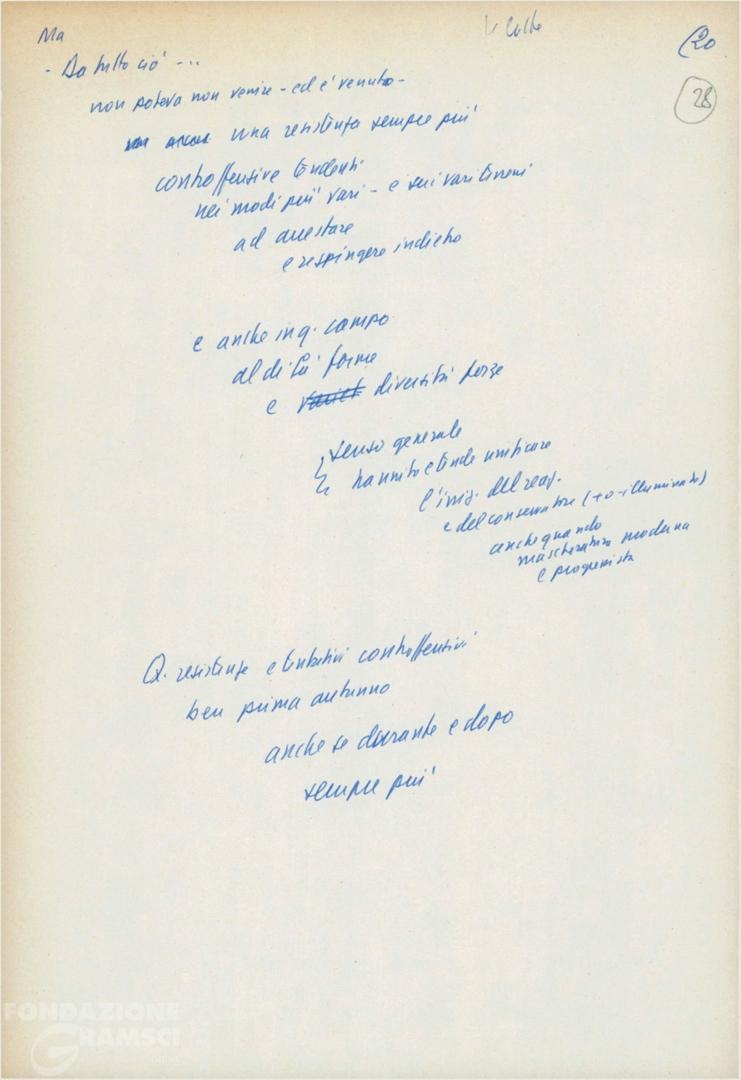 Ma
(20
28
- Da tutto ciò - ..
non poteva non venire - ed è venuta -
una resistenza sempre più
controffensive tendenti
nei modi più vari - e sui vari terreni
ad arrestare
e respingere indietro
e anche in q. campo
al di là forme
e diversità forze
senso generale
ha unito e tende unificare
del reaz.
e del conservatore (+ o - illuminato)
anche quando
mascheratura moderna
e progressista
Q. resistenze e tentativi controffensivi
ben prima autunno
anche se durante e dopo
sempre più
FONDAZIONE
GRAMSCI